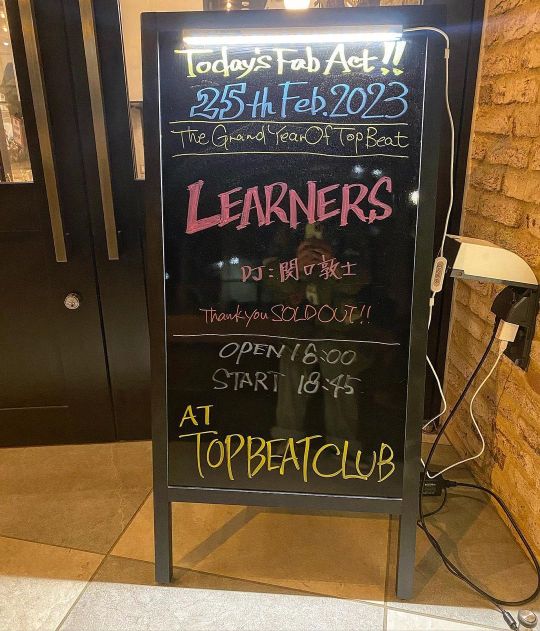 Today's Fab Act!!
25th Feb. 2023
The Grand Year Of Top Beat
LEARNERS
DJ:関口敦士
Thank you SOLD OUT!!
OPEN 18:00
START 18:45
AT
TOPBEAT CLUB